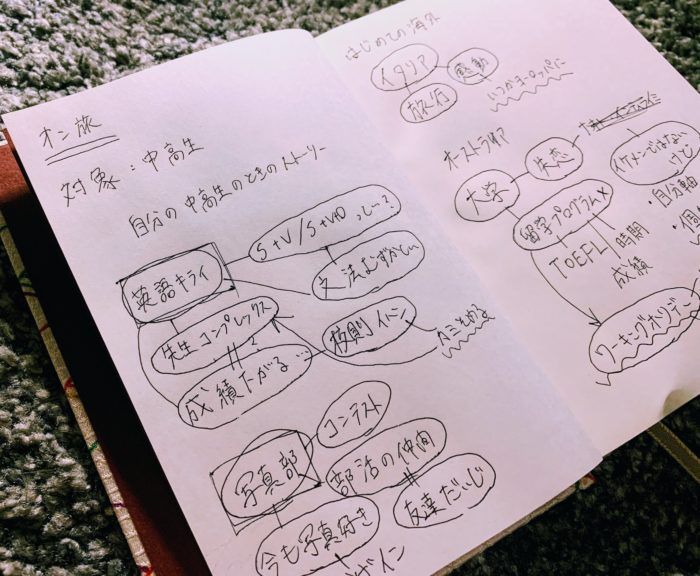 オン旅
対象：中高生
自分の中高生のときのストーリー
S+V/S+V+O っしょ？
英語キライ
文法むずかしい
先生コンプレックス
成績下がる…
校則イハン
コンテスト
写真部
部活の仲間
友達だいじ
今も写真好き
はじめての海外
イタリア
感動
旅行
いつかヨーロッパに
オーストラリア
大学
失恋
イケメンではない
けど
留学プログラム×
・自分軸
TOEFL 時期
成績
ワーキングホリデー